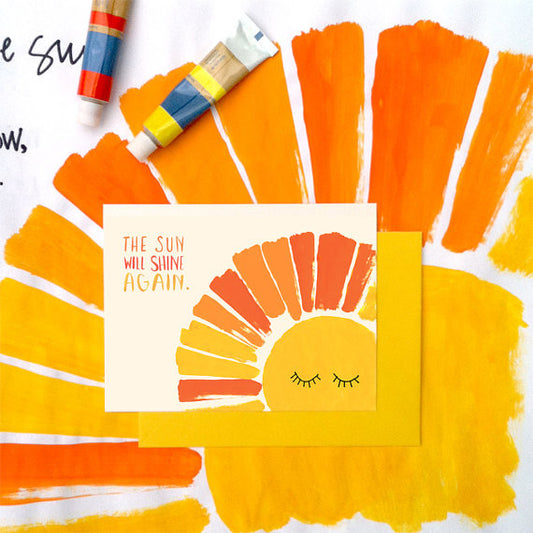 e su
ow,
THE SUN
WILL SHINE
AGAIN.